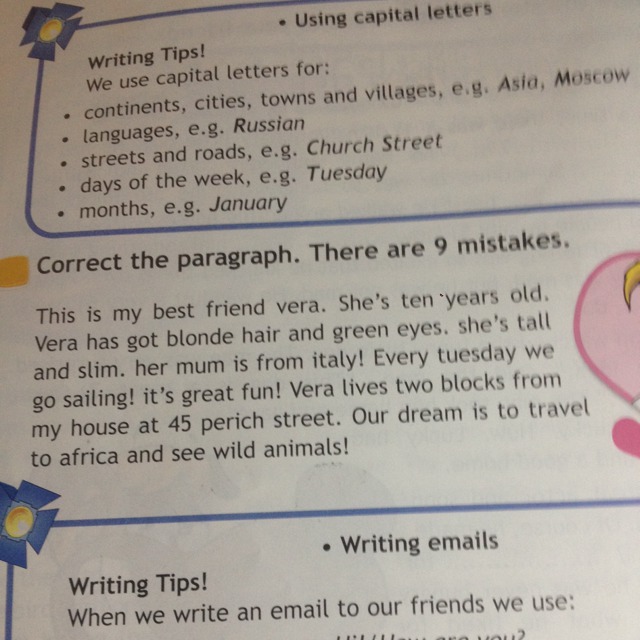 • Using capital letters
Writing Tips!
We use capital letters for:
• continents, cities, towns and villages, e.g. Asia, Moscow
• languages, e.g. Russian
• streets and roads, e.g. Church Street
• days of the week, e.g. Tuesday
• months, e.g. January
Correct the paragraph. There are 9 mistakes.
This is my best friend vera. She's ten years old.
Vera has got blonde hair and green eyes. she's tall
and slim. her mum is from italy! Every tuesday we
go sailing! it's great fun! Vera lives two blocks from
my house at 45 perich street. Our dream is to travel
to africa and see wild animals!
• Writing emails
Writing Tips!
When we write an email to our friends we use:
are you?